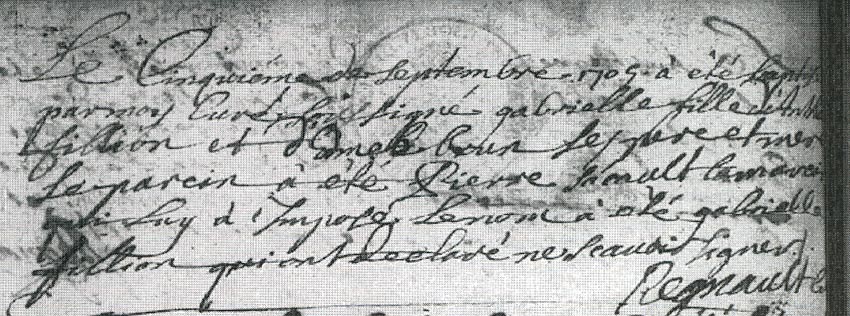 Le Cinquiéme de Septembre 1705 a été bapti
par moy Curé sous signé gabrielle fille d'Anth
fillion et d'anne le brun Ses pere et mere
Le parein à été Pierre la mare
qui luy à Imposé le nom à été gabrielle
fillion qui ont declaré ne scavoir signer
Regnault